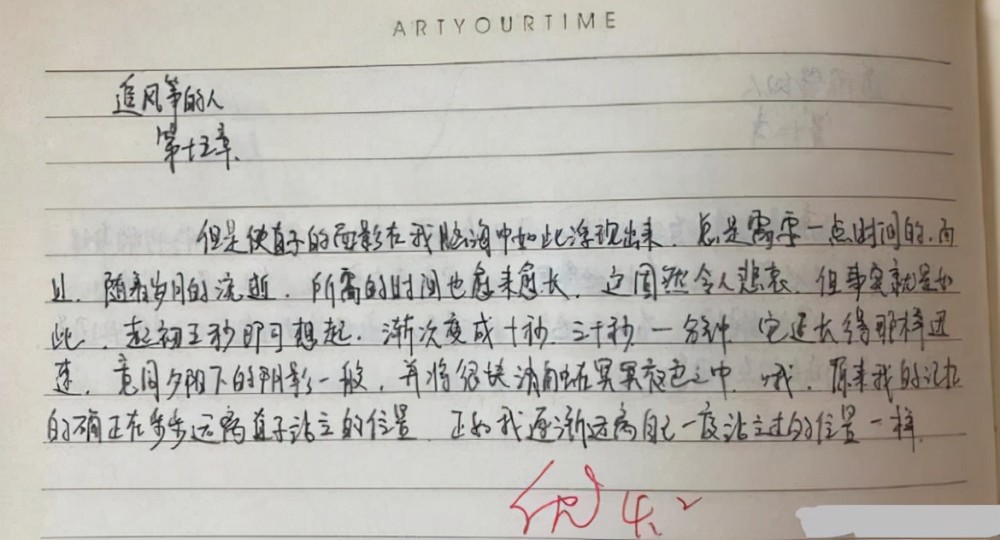 ARTYOURTIME
追风筝的人
第十五章.
但是使直子的面影在我脑海中如此浮现出来.总是需要一点时间的.而
且.随着岁月的流逝.所需的时间也愈来愈长.这固然令人悲哀.但事实就是如
此.起初五秒即可想起.渐次变成十秒.三十秒.一分钟.它延长得那样迅
速.竟同夕阳下的阴影一般.并将很快消融在冥冥夜色之中.哦.原来我的记忆
的确正在步步远离直子站立的位置.正如我逐渐远离自己一度站过的位置一样.